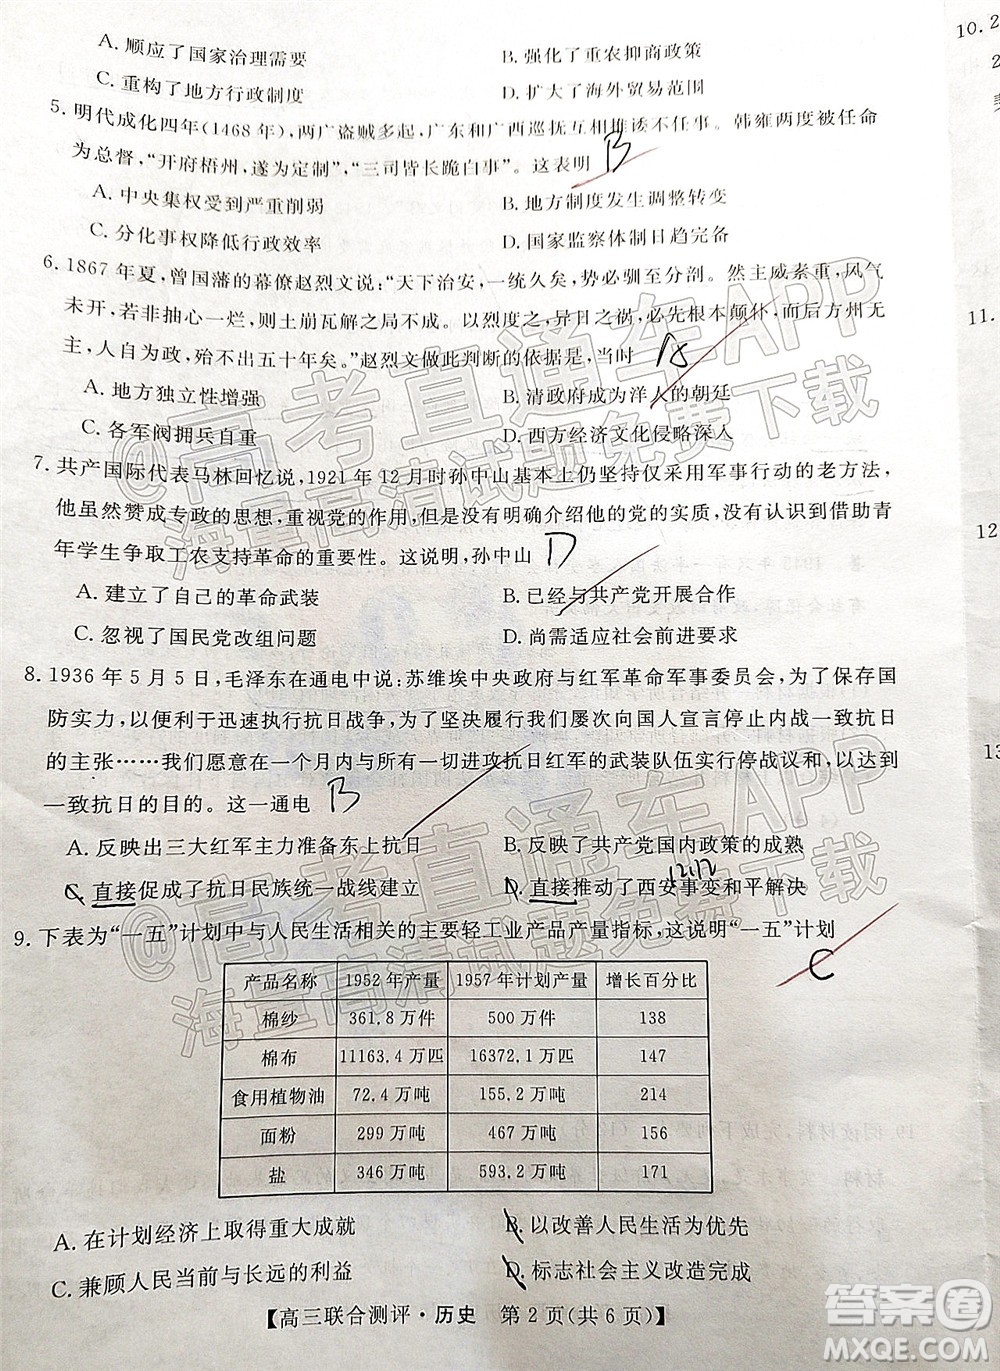 A. 顺应了国家治理需要 B. 强化了重农抑商政策
C. 重构了地方行政制度 D. 扩大了海外贸易范围
5. 明代成化四年(1468年),两广盗贼多起,广东和广西巡抚互相推诿不任事。韩雍两度被任命
为总督,“开府梧州,遂为定制”,“三司皆长跪白事”。这表明 B
A. 中央集权受到严重削弱 B. 地方制度发生调整转变
C. 分化事权降低行政效率 D. 国家监察体制日趋完备
6. 1867年夏,曾国藩的幕僚赵烈文说:“天下治安,一统久矣,势必驯至分剖。然主威素重,风气
未开,若非抽心一烂,则土崩瓦解之局不成。以烈度之,异日之祸,必先根本颠仆,而后方州无
主,人自为政,殆不出五十年矣。”赵烈文做此判断的依据是,当时
A. 地方独立性增强 B. 清政府成为洋人的朝廷
C. 各军阀拥兵自重 D. 西方经济文化侵略深入
7. 共产国际代表马林回忆说,1921年12月时孙中山基本上仍坚持仅采用军事行动的老方法,
他虽然赞成专政的思想,重视党的作用,但是没有明确介绍他的党的实质,没有认识到借助青
年学生争取工农支持革命的重要性。这说明,孙中山 D
A. 建立了自己的革命武装 B. 已经与共产党开展合作
C. 忽视了国民党改组问题 D. 尚需适应社会前进要求
8. 1936年5月5日,毛泽东在通电中说:苏维埃中央政府与红军革命军事委员会,为了保存国
防实力,以便利于迅速执行抗日战争,为了坚决履行我们屡次向国人宣言停止内战一致抗日
的主张……我们愿意在一个月内与所有一切进攻抗日红军的武装队伍实行停战议和,以达到
一致抗日的目的。这一通电 B
A. 反映出三大红军主力准备东上抗日 B. 反映了共产党国内政策的成熟
12.12
C. 直接促成了抗日民族统一战线建立 D. 直接推动了西安事变和平解决
9. 下表为“一五”计划中与人民生活相关的主要轻工业产品产量指标,这说明“一五”计划
C
产品名称 1952年产量 1957年计划产量 增长百分比
棉纱 361.8万件 500万件 138
棉布 11163.4万匹 16372.1万匹 147
食用植物油 72.4万吨 155.2万吨 214
面粉 299万吨 467万吨 156
盐 346万吨 593.2万吨 171
A. 在计划经济上取得重大成就 B. 以改善人民生活为优先
C. 兼顾人民当前与长远的利益 D. 标志社会主义改造完成
【高三联合测评·历史 第2页(共6页)】
10. 2
2
11.
12
13
@高考直通车APP
海量高清试题免费下载
@高考直通车APP
海量高清试题免费下载
答案圈
MXQE.COM